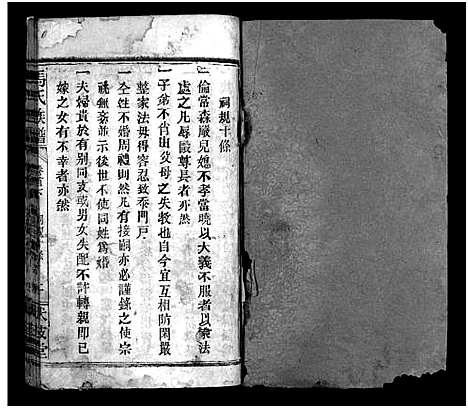 祠規十條
一倫當森嚴兒媳不孝當曉以大義不服者以家法
處之凡辱毆尊長者亦然
一子弟不肖由父母之失教也自今宜互相防閑嚴
整家法毋得容忍致忝門戶
一仝姓不婚周禮則然凡有接嗣亦必謹錄之使宗
祧無紊並示後世不使同姓爲婚
一夫婦貴於有别同支或男女失配不許轉親即已
嫁之女有不幸者亦然
馬氏族譜